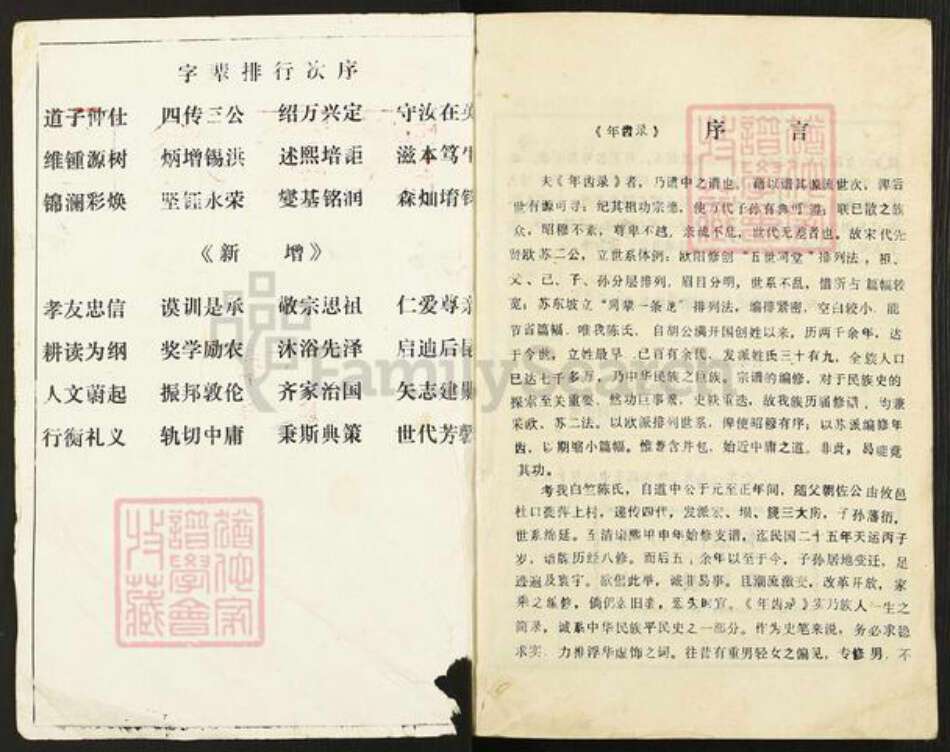 字辈排行次序
道子仲仕 四传三公 绍万兴定 守汝在
维锺源树 炳增锡洪 述熙培 滋本笃
锦澜彩焕 坚钰永荣 燮基铭润 森灿堉
《新 增》
孝友忠信 谟训是承 敬宗思祖 仁爱尊
耕读为纲 奖学励农 沐浴先泽 启迪后
人文蔚起 振邦敦伦 齐家治国 矢志建
行衡礼义 轨切中庸 秉斯典策 世代芳
《年齿录》 序 言
夫《年齿录》者，乃谱中之谱也。藉以谱其源流世次，俾后
世有源可寻；纪其祖功宗德，使万代子孙有典可；联已散之族
众，昭穆不紊，尊卑不越，亲疏不乱，世代无差者也。故宋代先
贤欧苏二公，立世系体例：欧阳修创“五世同堂”排列法，祖、
父、己、子、孙分层排列，眉目分明，世系不乱，惜所占篇幅较
宽；苏东坡立“一条龙”排列法，编排紧密，空白较小，能
节省篇幅。唯我陈氏，自胡公满开国创姓以来，历两千余年，达
于今世，立姓最早，已百有余代，发派姓氏三十有九，全族人口
已达七千多万，乃中华民族之巨族。宗谱的编修，对于民族史的
探索至关重要，然功巨事繁，史轶重迭，故我族历届修谱，均兼
采欧、苏二法。以欧派排列世系，俾使昭穆有序；以苏派编修年
齿，以期缩小篇幅。惟兼含并包，始近中庸之道。非此，曷能竟
其功。
考我白竺陈氏，自道中公于元至正年间，随父朝佐公由攸邑
杜口萍上村，递传四代，发派宏、埙、饶三大房，子孙藩衍，
世系绵延。至清康熙甲申年始修支谱，迄民国二十五年天运丙子
岁，谱牒历经八修。而后五十余年以至于今，子孙居地变迁，足
迹遍及寰宇。欲倡此举，诚非易事。且潮流激变，改革开放，家
乘之编修，倘仍袭旧章，恐失时宜。《年齿录》实乃族人一生之
简录，诚系中华民族平民史之一部分。作为史笔来说，务必求稳
求实，力摒浮华虚饰之词。往昔有重男轻女之偏见，专修男，不
猶他家
譜學會
收藏
猶他家
譜學會
收藏
FamilySearch